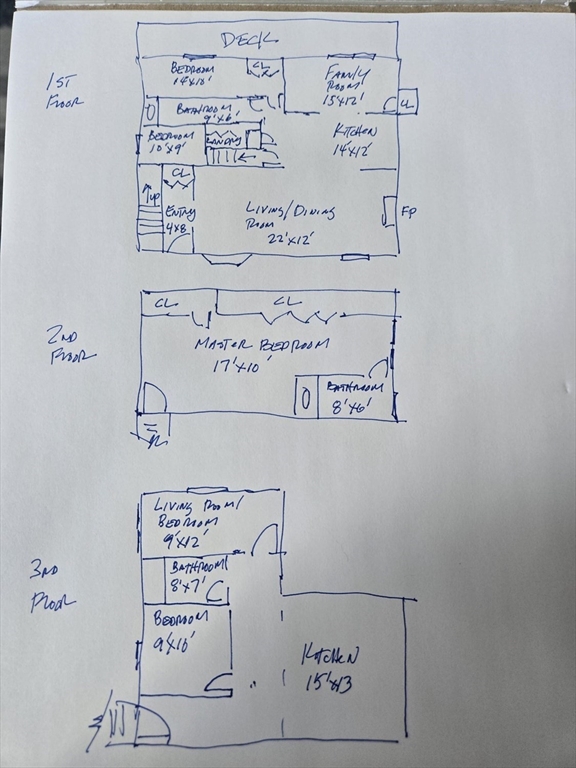 DECK
1ST
FLOOR
BEDROOM
14'X10'
CL
FAMILY
ROOM
15'X12'
CL
BATHROOM
9'X6'
BEDROOM
10'X9'
LANDRY
KITCHEN
14'X12'
CL
UP
ENTRY
4X8
LIVING/DINING
ROOM
22'X12'
FP
2ND
FLOOR
CL
CL
MASTER BEDROOM
17'X10'
BATHROOM
8'X6'
3RD
FLOOR
LIVING ROOM/
BEDROOM
9'X12'
BATHROOM
8'X7'
BEDROOM
9'X10'
KITCHEN
15'X13